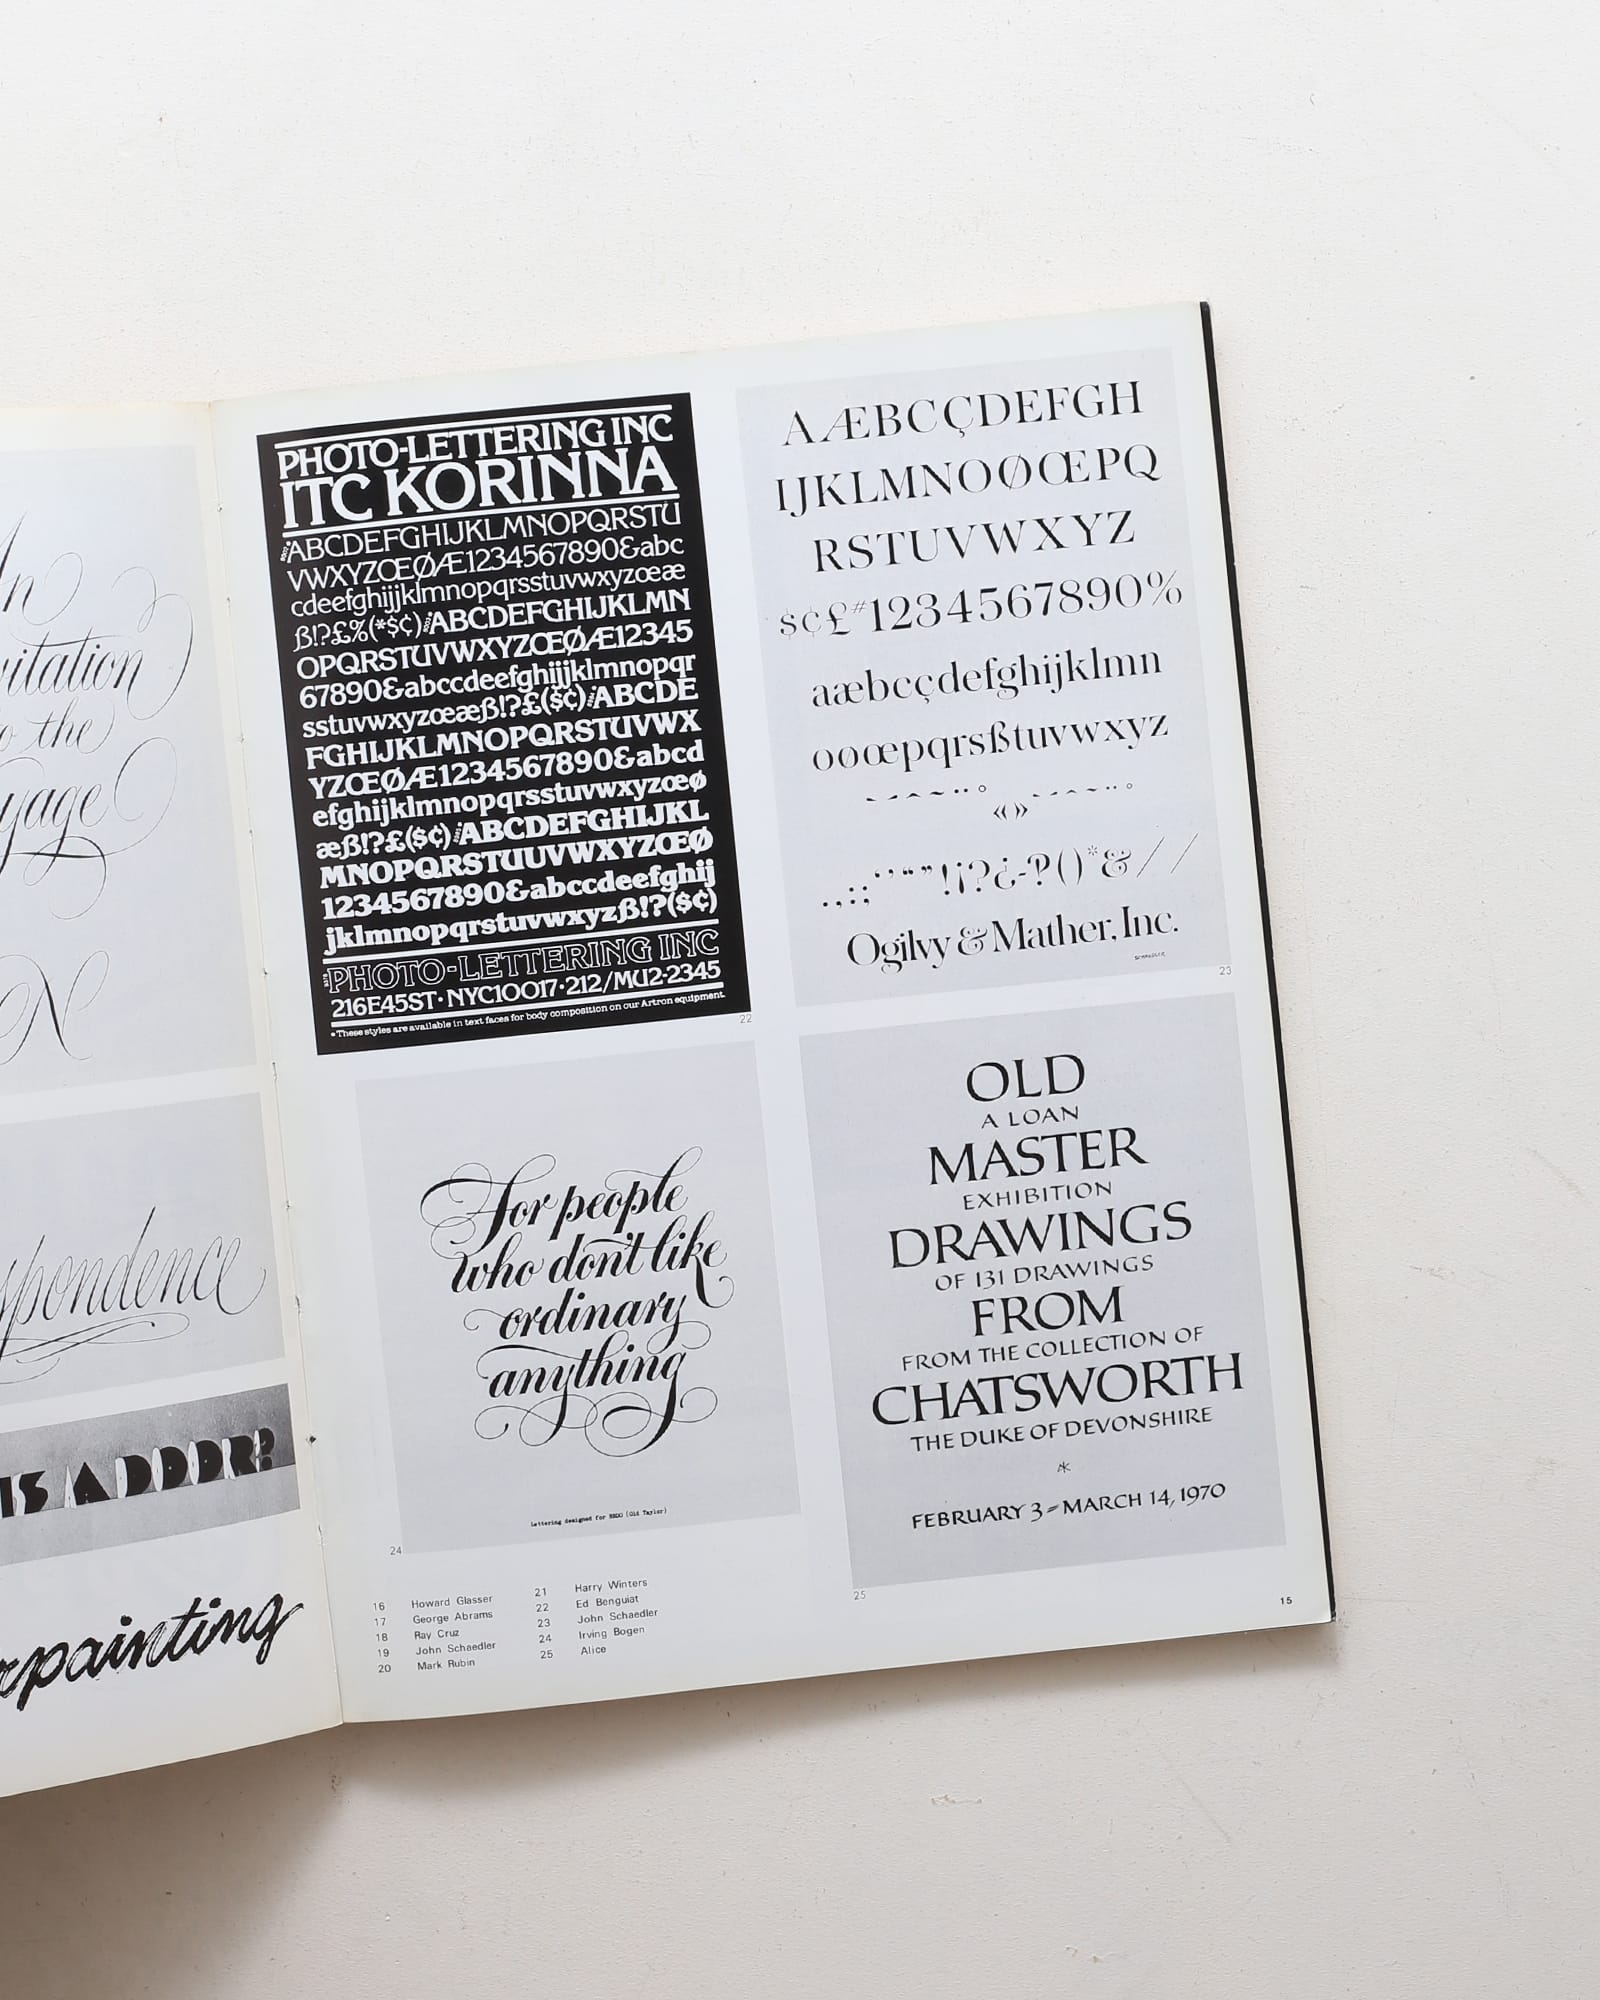 An
the
spondence
IS A DOOOR?
painting
PHOTO-LETTERING INC
ITC KORINNA
ABCDEFGHIJKLMNOPQRSTU
VWXYZŒØÆ1234567890&abc
cdeefghijjklmnopqrsstuvwxyzœæ
ß!?£%(*$¢) ABCDEFGHIJKLMN
OPQRSTUVWXYZŒØÆ12345
67890&abccdeefghijjklmnopqr
sstuvwxyzœæß!?£($¢) ABCDE
FGHIJKLMNOPQRSTUVWX
YZŒØÆ1234567890&abcd
efghijklmnopqrsstuvwxyzœø
æß!?£($¢) ABCDEFGHIJKL
MNOPQRSTUUVWXYZŒØ
1234567890&abccdeefghij
jklmnopqrstuvwxyzß!?($¢)
PHOTO-LETTERING INC
216E45ST·NYC10017·212/MU2-2345
*These styles are available in text faces for body composition on our Artron equipment.
22
AÆBCÇDEFGH
IJKLMNOØŒPQ
RSTUVWXYZ
$¢£#1234567890%
aæbcçdefghijklmn
oøœpqrsßtuvwxyz
«»
.,:;‘’“”!¡?¿-‽()*&//
Ogilvy & Mather, Inc.
SCHAEDLER
23
For people
who don't like
ordinary
anything
Lettering designed for BBDO (Old Taylor)
24
OLD
A LOAN
MASTER
EXHIBITION
DRAWINGS
OF 131 DRAWINGS
FROM
FROM THE COLLECTION OF
CHATSWORTH
THE DUKE OF DEVONSHIRE
FEBRUARY 3-MARCH 14, 1970
25
16 Howard Glasser
17 George Abrams
18 Ray Cruz
19 John Schaedler
20 Mark Rubin
21 Harry Winters
22 Ed Benguiat
23 John Schaedler
24 Irving Bogen
25 Alice
15